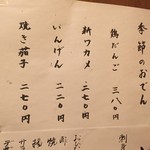 季節のおでん
鶏だんご 三八〇円
新ワカメ 二七〇円
いんげん 二二〇円
焼き茄子 二七〇円